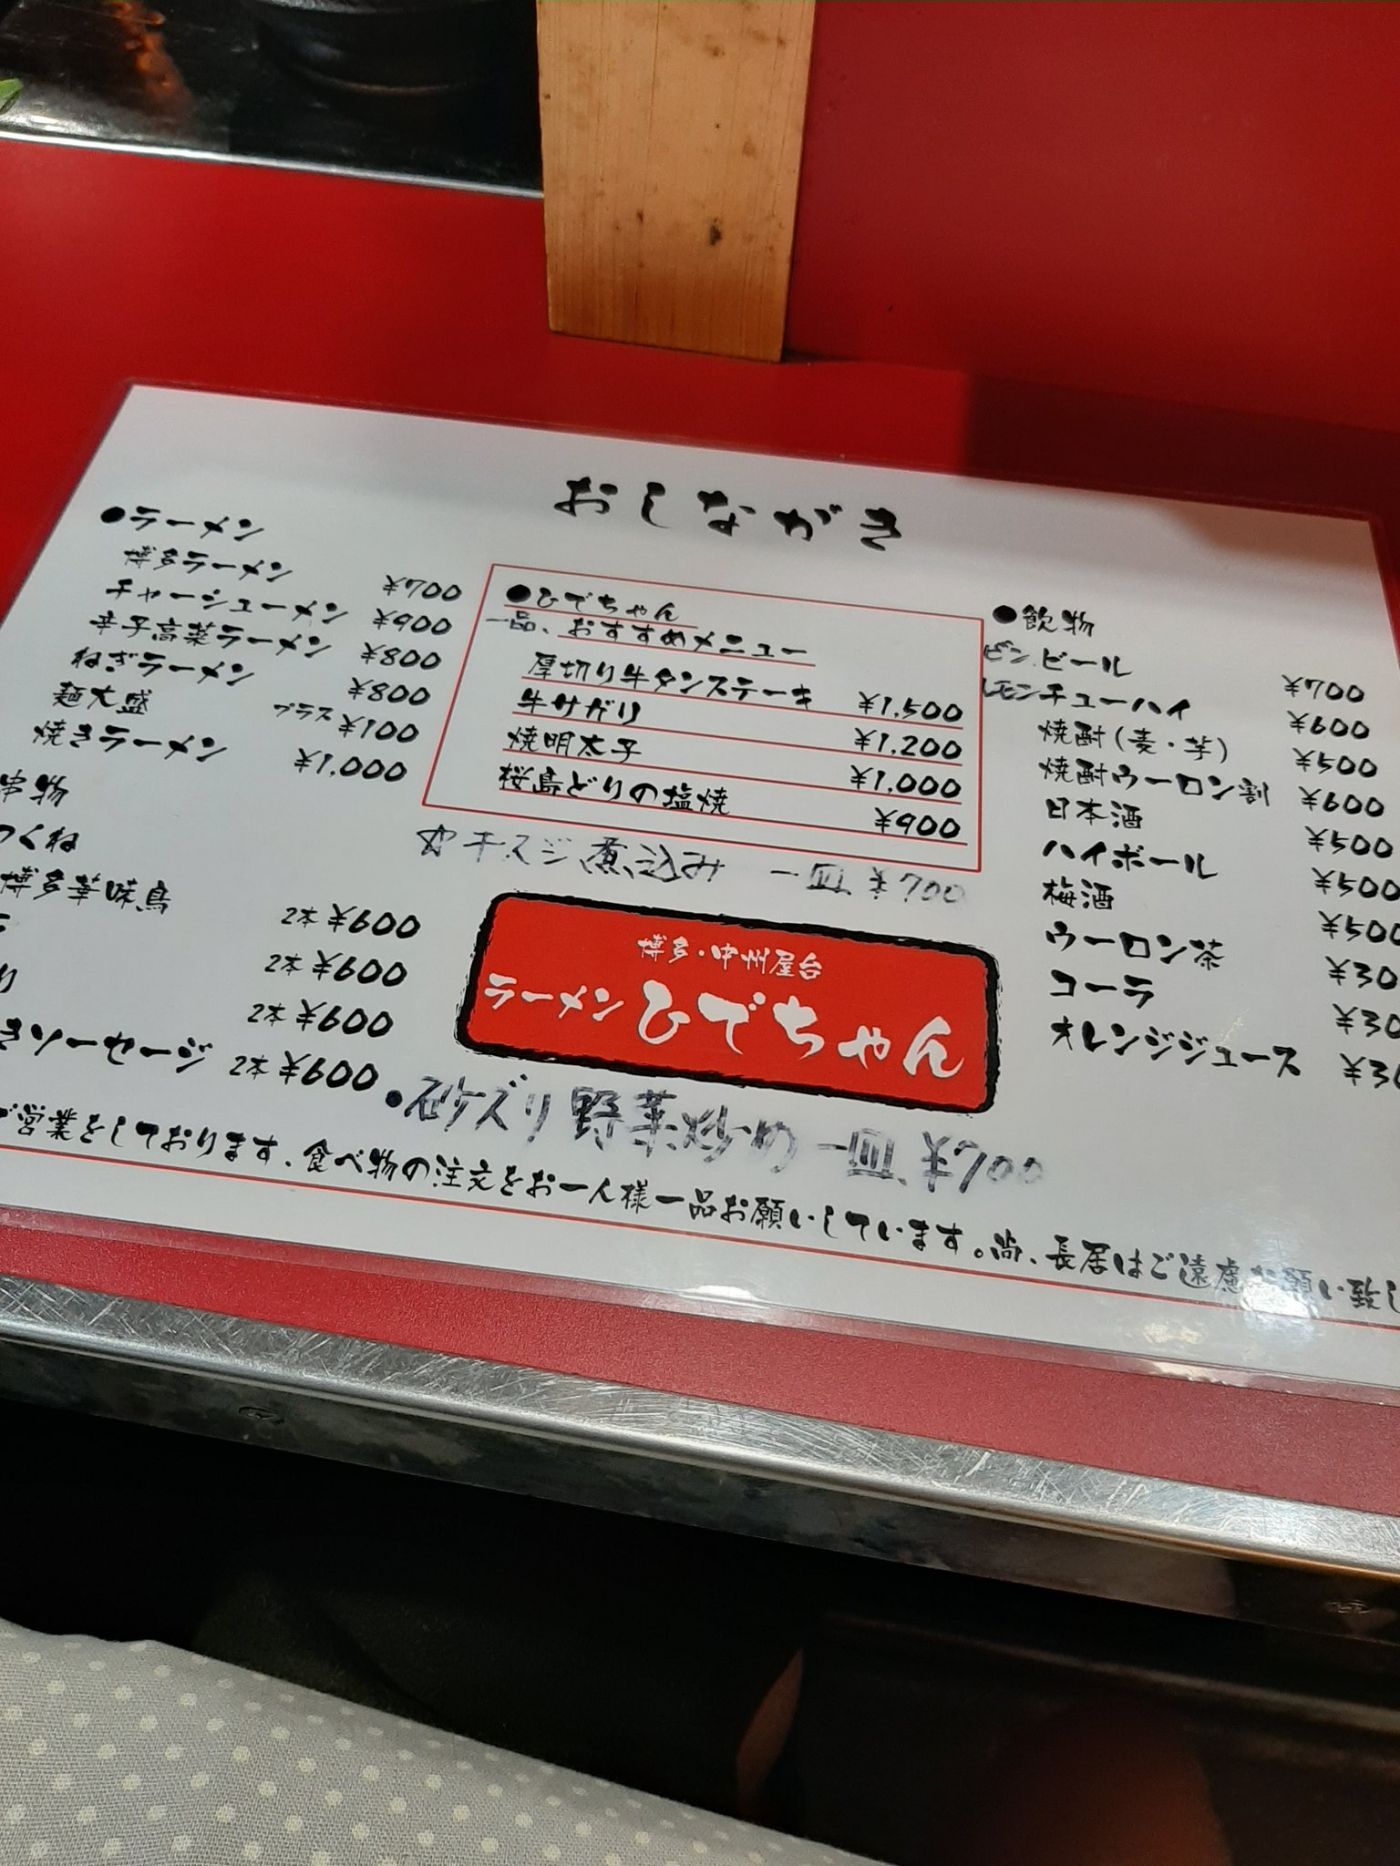 おしながき
●ラーメン
博多ラーメン ¥700
チャーシューメン ¥900
辛子高菜ラーメン ¥800
ねぎラーメン ¥800
麺大盛 プラス¥100
焼きラーメン ¥1.000
串物
つくね
博多華味鳥 2本 ¥600
2本 ¥600
り 2本 ¥600
ソーセージ 2本 ¥600
●ひでちゃん
一品、おすすめメニュー
厚切り牛タンステーキ ¥1.500
牛サガリ ¥1.200
焼明太子 ¥1.000
桜島どりの塩焼 ¥900
牛スジ煮込み 一皿 ¥700
博多・中州屋台
ラーメン ひでちゃん
●砂ズリ野菜炒め 一皿 ¥700
●飲物
ビンビール ¥700
レモンチューハイ ¥600
焼酎(麦・芋) ¥500
焼酎ウーロン割 ¥600
日本酒 ¥500
ハイボール ¥500
梅酒 ¥500
ウーロン茶 ¥30
コーラ ¥30
オレンジジュース ¥30
で営業をしております、食べ物の注文をお一人様一品お願いしています。尚、長居はご遠慮お願い致し